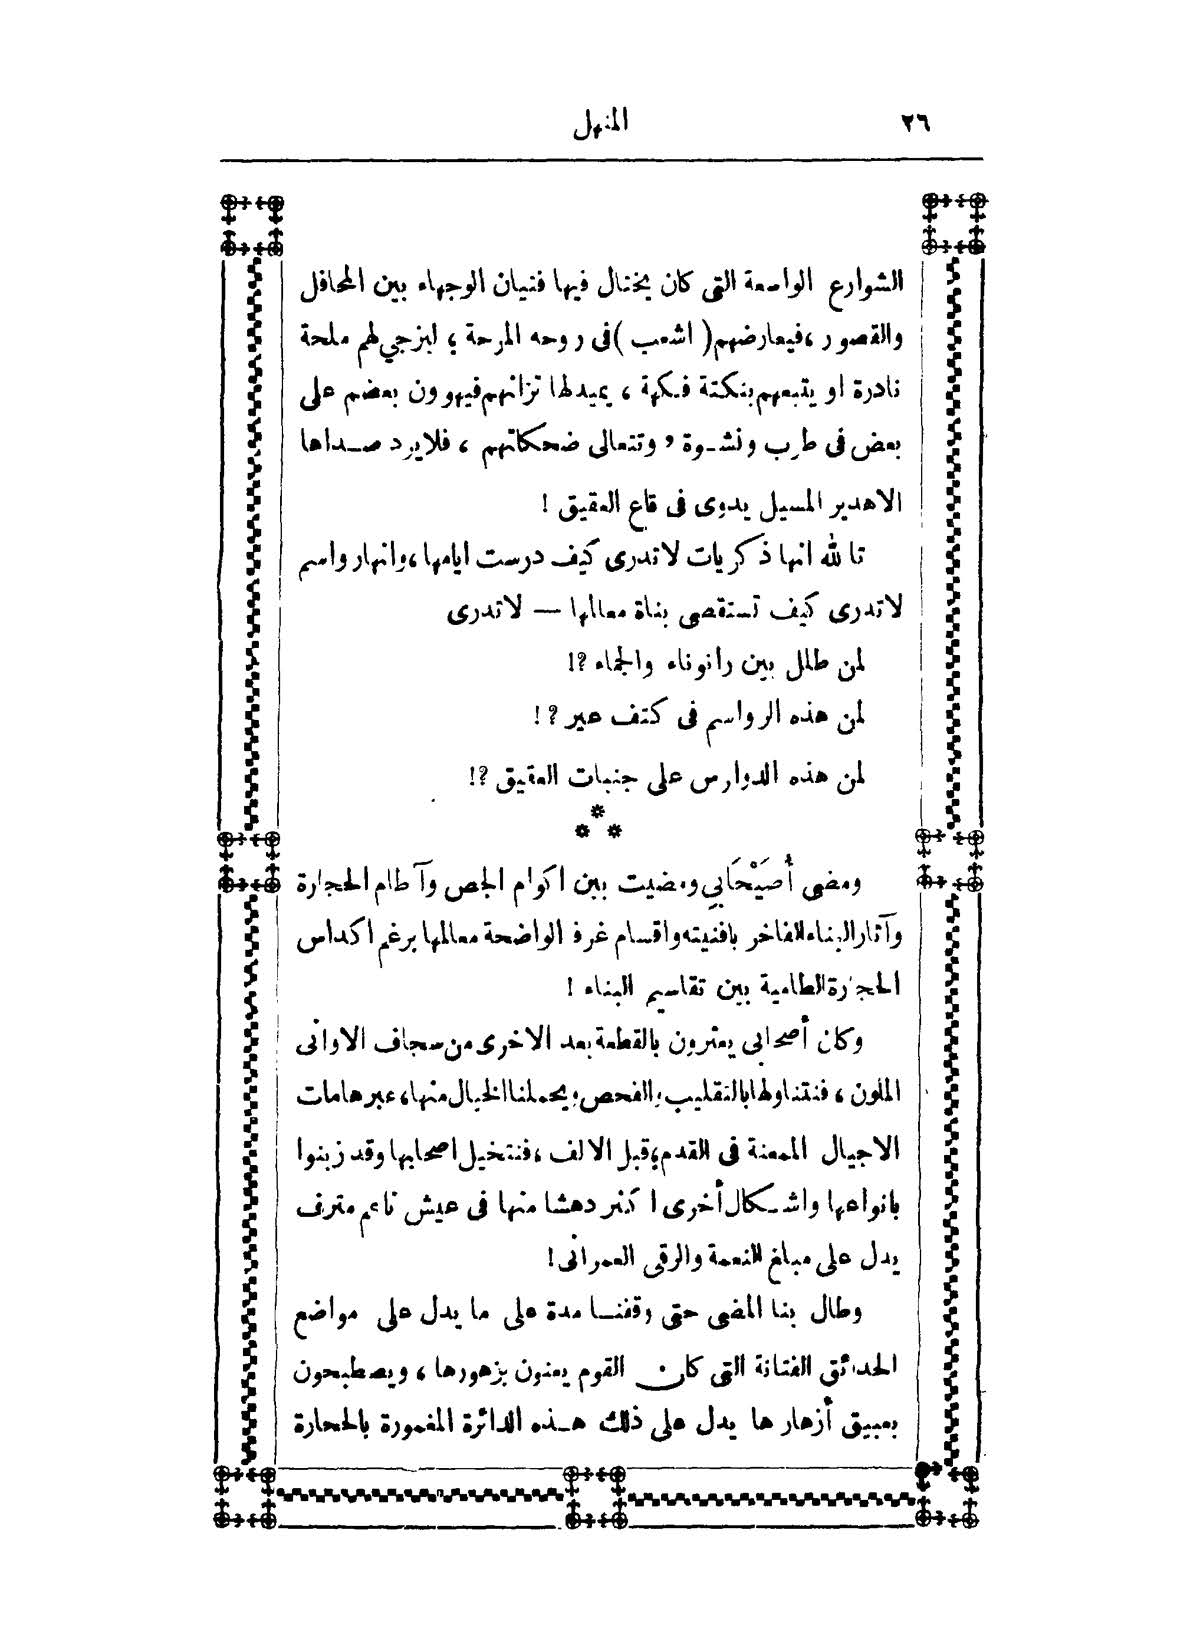 ٢٦
المنهل
الشوارع الواسعة التى كان يختال فيها فتيان الوجهاء بين المحافل
والقصور ،فيعارضهم( اشعب )فى روحه المرحة ؛ ليزجي لهم ملحة
نادرة او يتبعهم بنكتة فكهة ، يميد لها تزانهم فيهوون بعضم على
بعض فى طرب ونشوة , وتتعالى ضحكاتهم ، فلايرد صداها
الاهدير المسيل يدوى فى قاع العقيق !
تالله انها ذكريات لاتدرى كيف درست ايامها ،وانهار واسم
لاتدرى كيف تستقصى بناة معالمها — لاتدرى
لمن طلل بين رانوناء والجماء ؟!
لمن هذه الرواسم فى كتف عير ؟!
لمن هذه الدوارس على جنبات العقيق ؟!
* * *
ومضى أُصَيْحَابي ومضيت بين اكوام الجص وآطام الحجارة
وآثار البناء الفاخر بافنيته واقسام غرفه الواضحة معالمها برغم اكداس
الحجارة الطامية بين تقاسيم البناء !
وكان أصحابى يعثرون بالقطعة بعد الاخرى من سجاف الاوانى
الملون ، فنتناولها بالتقليب والفحص ويحملنا الخيال منها، عبر هامات
الاجيال الممعنة فى القدم ؛ قبل الالف ، فنتخيل اصحابها وقد زينوا
بانواعها واشكال أخرى اكثر دهشا منها فى عيش ناعم مترف
يدل على مبلغ النعمة والرقى العمرانى !
وطال بنا المضى حتى وقفنا مدة على ما يدل على مواضع
الحدائق الفتانة التى كان القوم يعنون بزهورها ، ويصطبحون
بعبيق أزهارها يدل على ذلك هذه الدائرة المغمورة بالحجارة